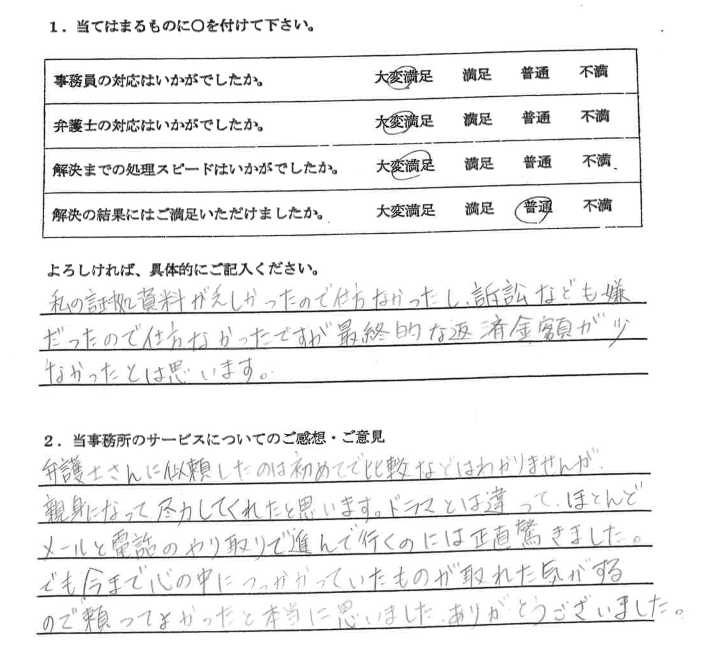 1．当てはまるものに○を付けて下さい。
事務員の対応はいかがでしたか。 大変満足 満足 普通 不満
弁護士の対応はいかがでしたか。 大変満足 満足 普通 不満
解決までの処理スピードはいかがでしたか。 大変満足 満足 普通 不満
解決の結果にはご満足いただけましたか。 大変満足 満足 普通 不満
よろしければ、具体的にご記入ください。
私の証拠資料がえしかったので仕方なかったし、訴訟なども嫌
だったので仕方なかったですが最終的な返済金額が少
なかったとは思います。
2．当事務所のサービスについてのご感想・ご意見
弁護士さんに依頼したのは初めてで比較などはわかりませんが、
親身になって尽力してくれたと思います。ドラマとは違って、ほとんど
メールと電話のやり取りで進んで行くのには正直驚きました。
でも今まで心の中につっかかっていたものが取れた気がする
ので頼ってよかったと本当に思いました。ありがとうございました。